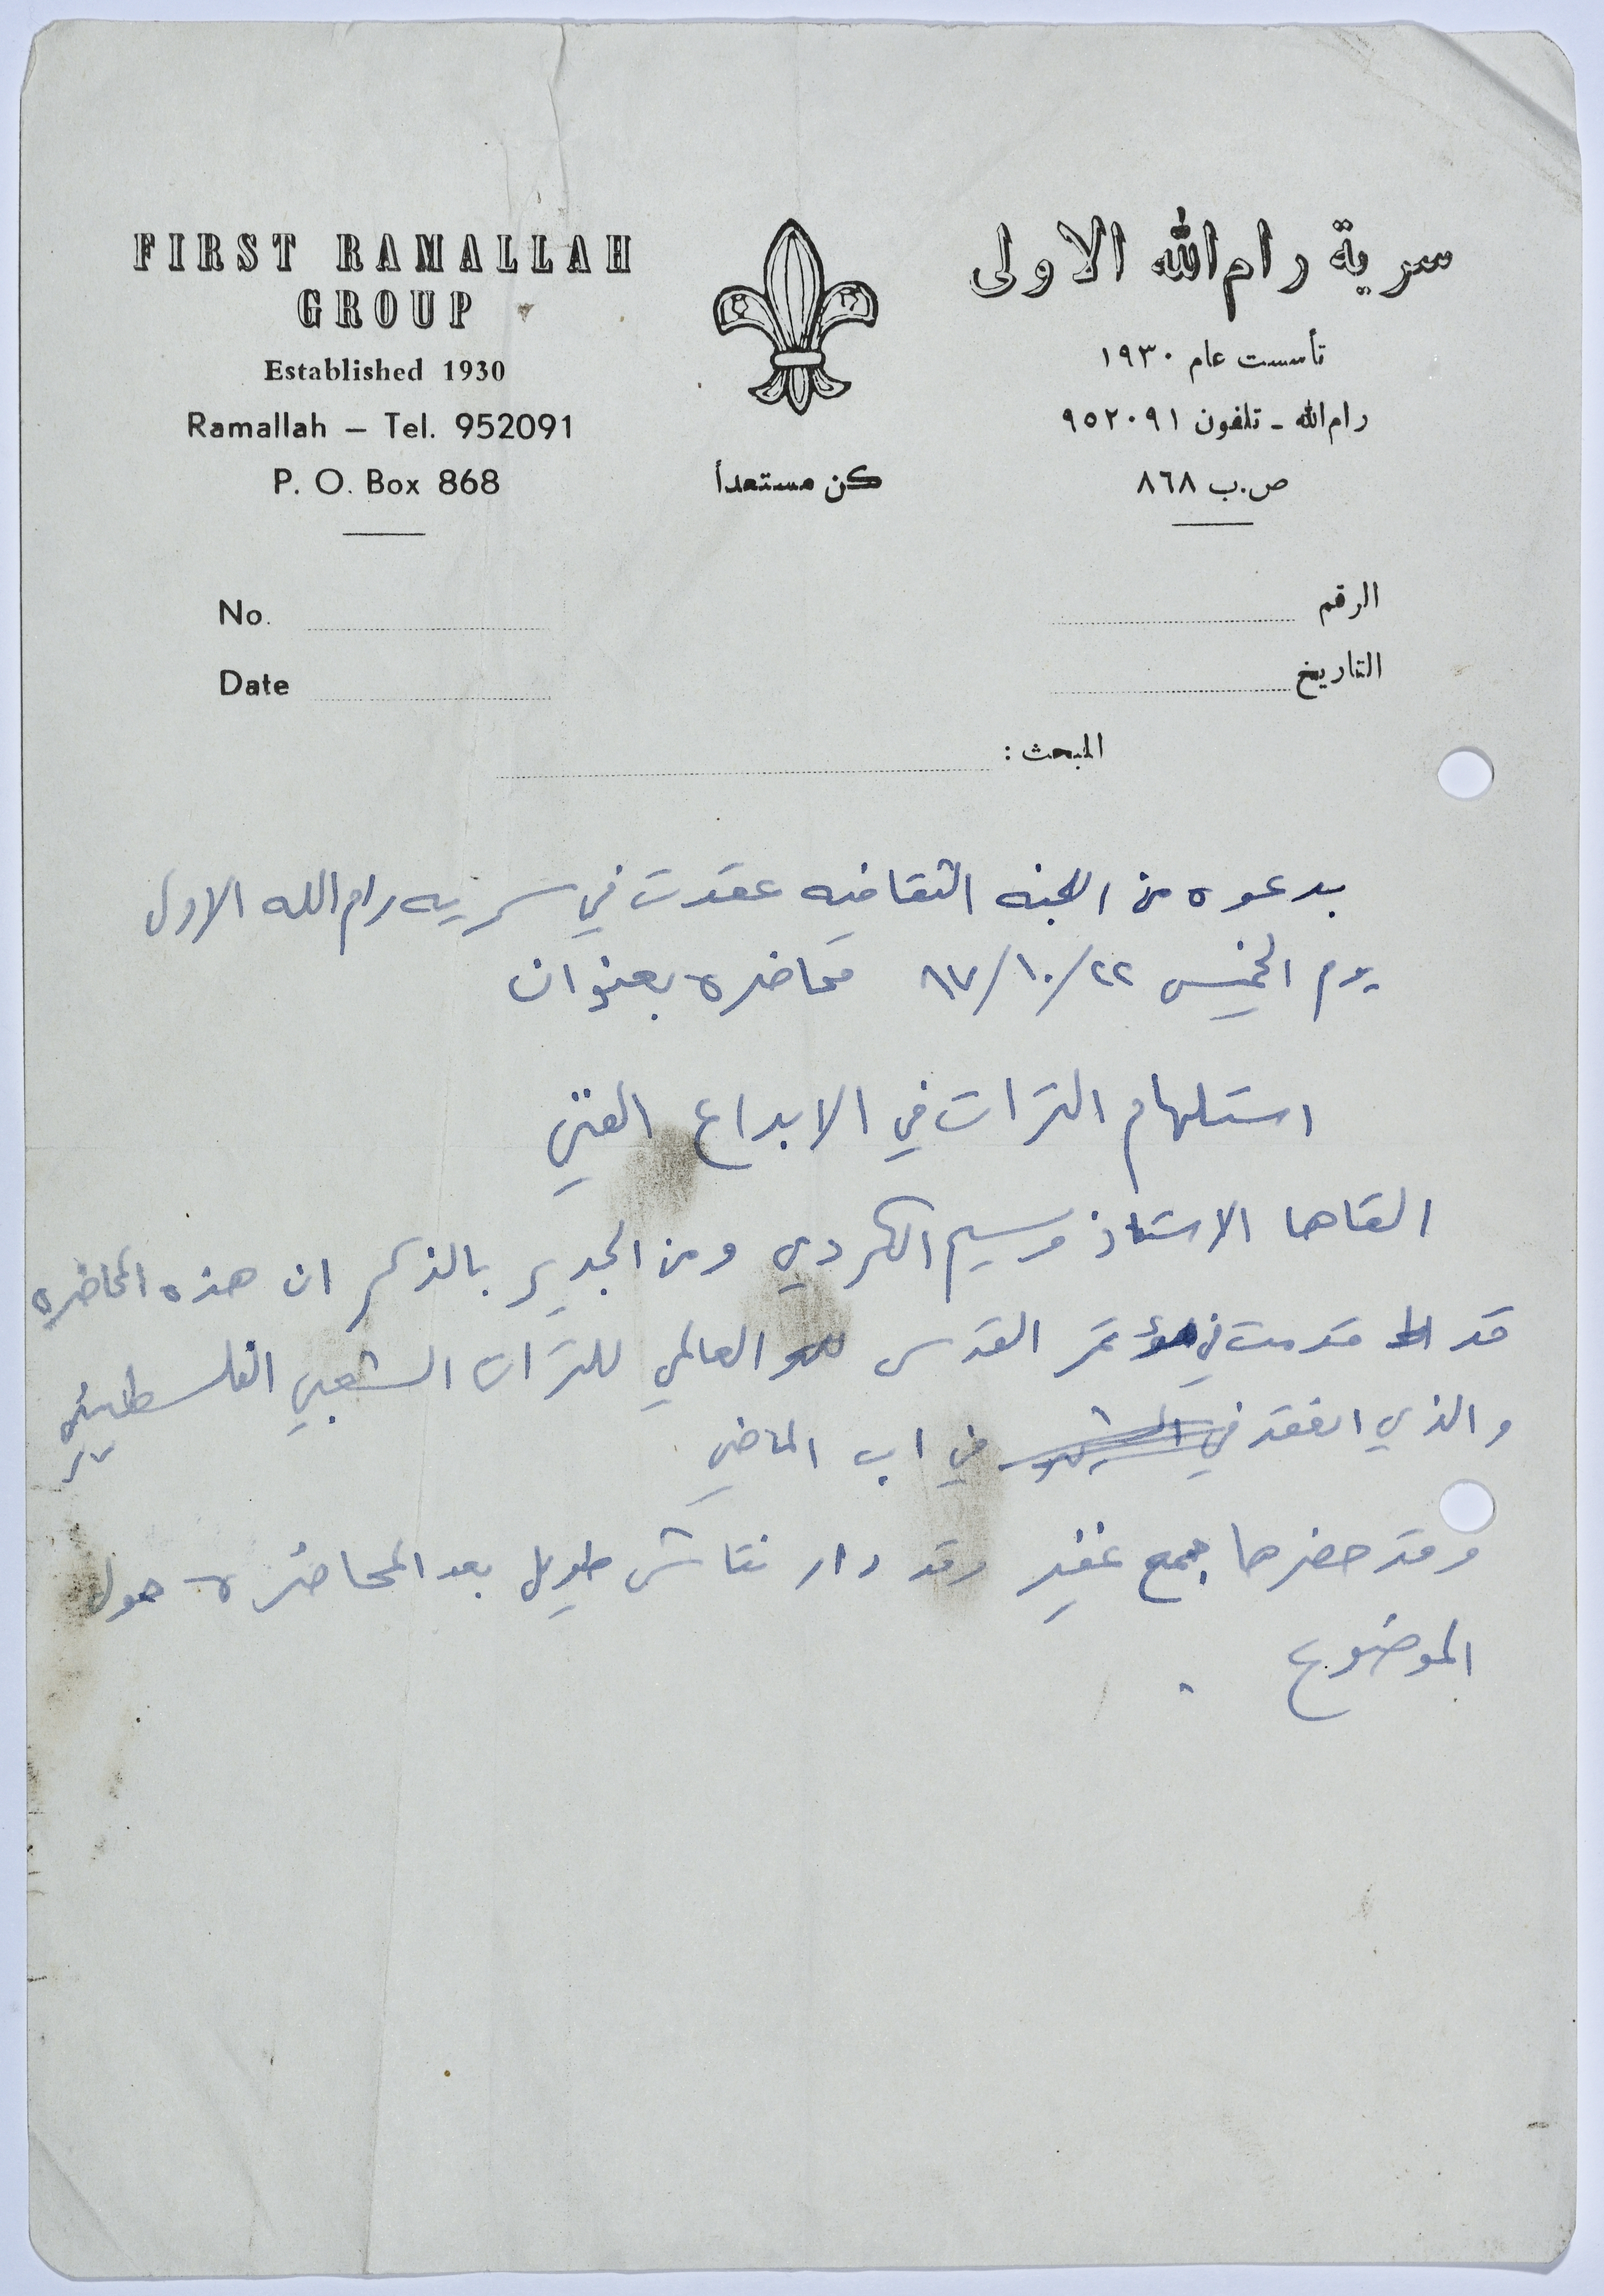 FIRST RAMALLAH
GROUP
Established 1930
Ramallah – Tel. 952091
P. O. Box 868
كن مستعداً
سرية رام الله الاولى
تأسست عام ١٩٣٠
رام الله - تلفون ٩٥٢٠٩١
ص.ب ٨٦٨
No.
الرقم
Date
التاريخ
المبحث :
بدعوه من اللجنه الثقافيه عقدت في سريه رام الله الاولى
يوم الخميس ٨٧/١٠/٢٢ محاضره بعنوان
استلهام التراث في الابداع الفني
القاها الاستاذ وسيم الكردي ومن الجدير بالذكر ان هذه المحاضره
قد قدمت في مؤتمر القدس العالمي للتراث الشعبي الفلسطيني
والذي انعقد في في اب الماضي
وقد حضرها جمع غفير وقد دار نقاش طويل بعد المحاضره حول
الموضوع .